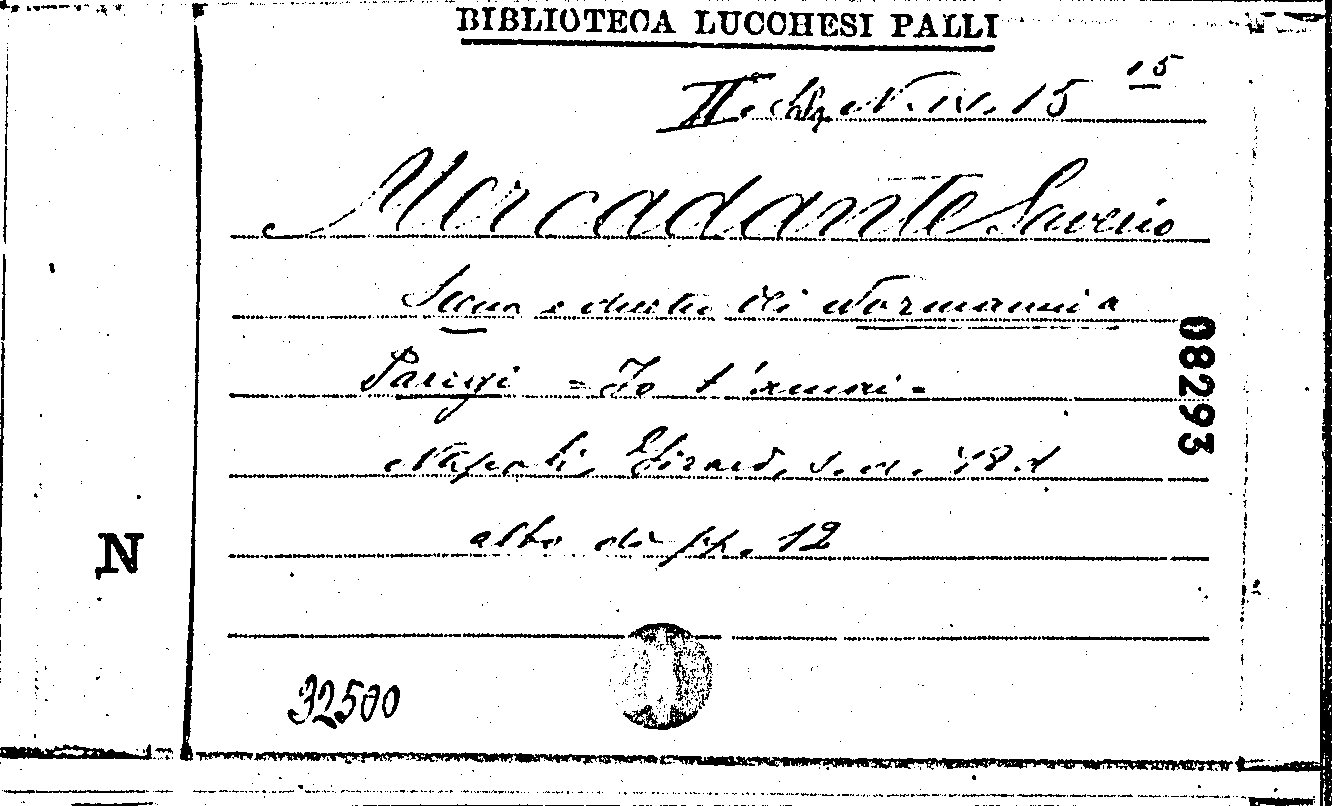 BIBLIOTECA LUCCHESI PALLI
II. N. IV. 15 15
Mercadante Saverio
Scena e duetto di Normanni a
Parigi = Io t'amai =
08293
Napoli, Girard, s. d. 
albo di pp. 12
N
32500